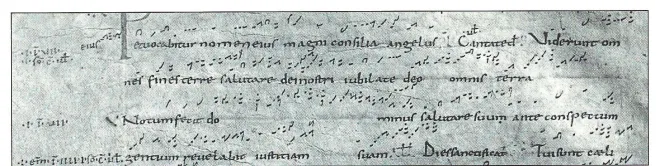 eius Et vocabitur nomen eius magni consilia angelus Cantated Viderunt om
nes fines terre salutare dei nostri iubilate deo omnis terra
Notum fecit do minus salutare suum ante conspectum
gentium revelabit iusticiam suam. Dies sanctificat Tui sunt cæli